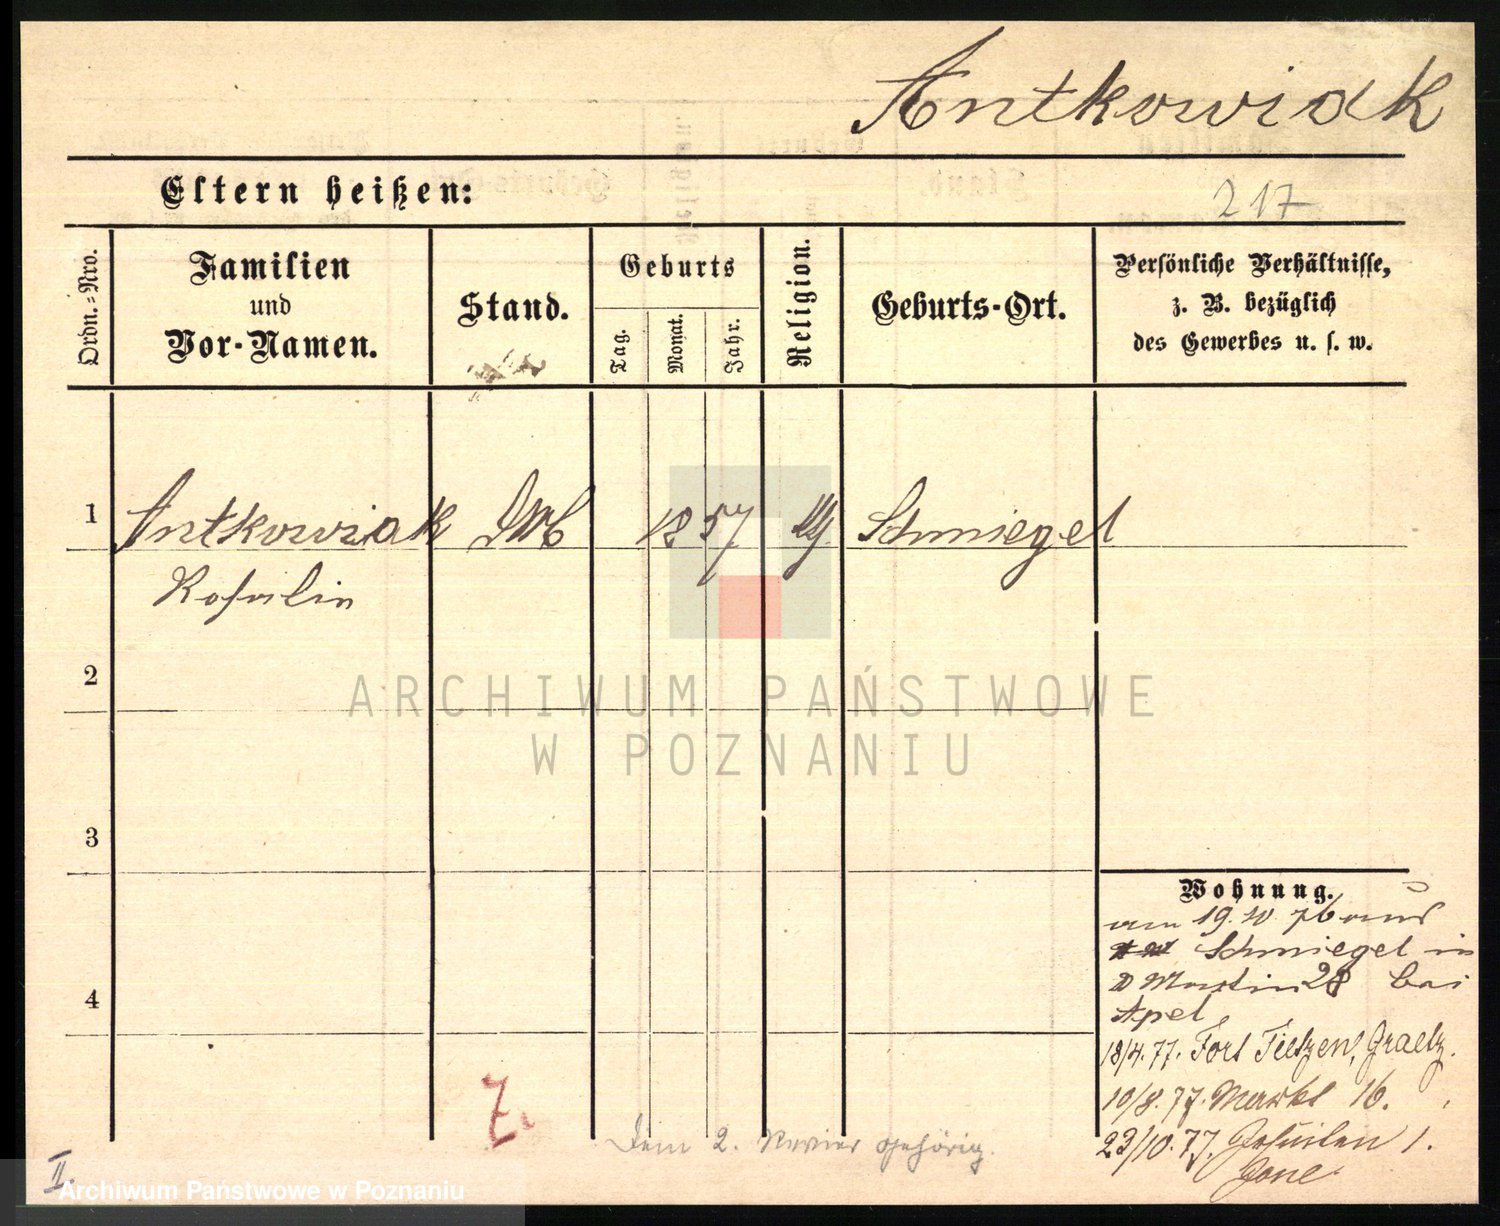 Antkowiak
Eltern heißen:
217
Ordn.=Nro.
Familien
und
Vor-Namen.
Stand.
Geburts
Tag.
Monat.
Jahr.
Religion.
Geburts-Ort.
Persönliche Verhältnisse,
z. B. bezüglich
des Gewerbes u. s. w.
1 Antkowiak 1857 Schmiegel
Rosalie
2
ARCHIWUM PAŃSTWOWE
W POZNANIU
3
4
Wohnung.
am 19.10.76 aus
Schmiegel in
Martin 28 bei
Apel
18/4.77. Fort Tietzen, Graetz.
10/8.77. Markt 16.
23/10.77. Jesuiten 1.
Z.
Dem 2. Revier gehörig.
II.
Archiwum Państwowe w Poznaniu